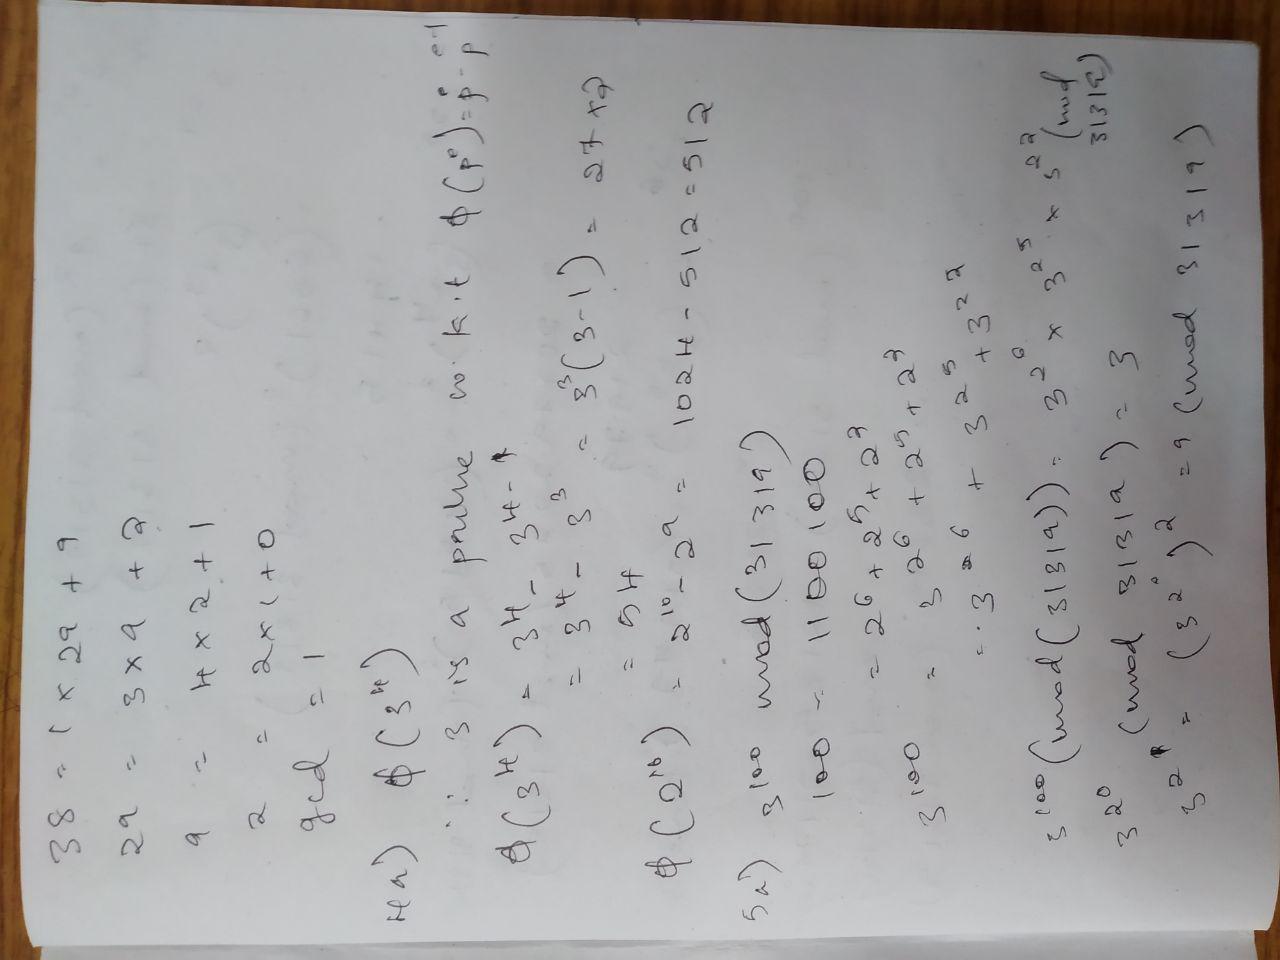 38 = 1 x 29 + 9
29 = 3 x 9 + 2
9 = 4 x 2 + 1
2 = 2 x 1 + 0
gcd = 1
4a) ϕ(3⁴)
∴ 3 is a w.k.t ϕ(pᵉ) = pᵉ - pᵉ⁻¹
ϕ(3⁴) = 3⁴ - 3⁴⁻¹
= 3⁴ - 3³ = 3³(3-1) = 27 x 2
= 54
ϕ(2¹⁰) = 2¹⁰ - 2⁹ = 1024 - 512 = 512
5a) 3¹⁰⁰ mod (31319)
100 - 1100100
= 2⁶ + 2⁵ + 2²
3¹⁰⁰ = 3 2⁶ + 2⁵ + 2²
= 3^2⁶ + 3^2⁵ + 3^2²
3¹⁰⁰ (mod (31319)) = 3^2⁶ x 3^2⁵ x 3^2² (mod 31319)
3^2⁰ (mod 31319) = 3
3^2¹ = (3^2⁰)² = 9 (mod 31319)